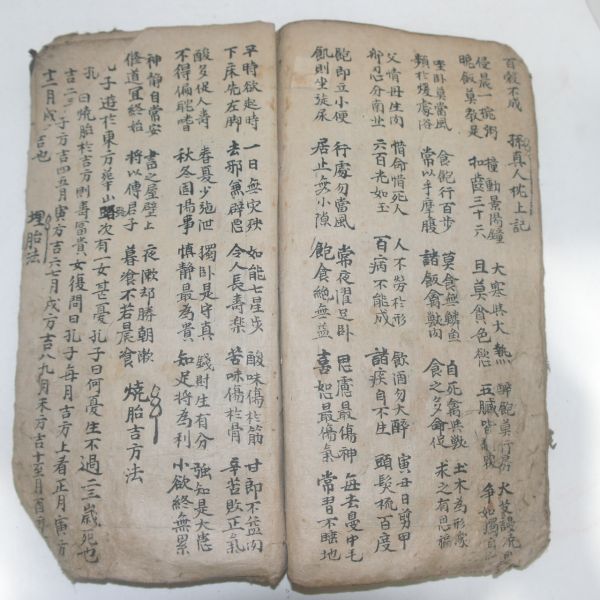 百穀不成 孫真人枕上記
侵晨一椀粥 撞動景陽鐘 大寒與大熱 醉飽莫行房
晩飯莫教足 扣齒三十六 且莫貪色慾 五臟皆 爭如獨自
坐卧莫當風 食飽行百步 莫食無鱗魚 自死禽與獸 土木為形像
頻於煖處浴 常以手摩腹 諸飯禽獸肉 食之多命促 求之有恩福
父精母生肉 惜命惜死人 人不勞於形 飮酒勿大醉 寅丑日剪甲
那忍分南北 六百光如玉 百病不能成 諸疾自不生 頭髮梳百度
飽即立小便 行處勿當風 常夜濯足卧 思慮最傷神 每去鼻中毛
飢則坐旋尿 居止無小隙 飽食絶無益 喜恕最傷氣 常習不睡地
早時欲起時 一日無灾殃 如能七星步 酸味傷於筋 甘即不益肉
下床先左脚 去邪無辟惡 令人長壽樂 苦味傷於骨 辛苦敗正氣
酸多促人壽 春夏少施泄 獨卧是守真 錢財生有分 强知是大患
不得偏眈嗜 秋冬固陽事 慎静最為貴 知足將為利 小欲終無累
神静自常安 書之屋壁上 夜漱却勝朝漱
修道宜終始 將以傳君子 暮飡不若晨飡 燒胎吉方法
孔子遊於東方華山路次有一女甚憂孔子曰何憂生不過二三歲死也
孔曰燒胎於吉方則壽富貴女復問曰孔子每月吉方上看正月寅方
吉二三子方吉四五月寅方吉六七月戌方吉八九月未方吉十至月酉方
十二月戌方吉也 埋胎法